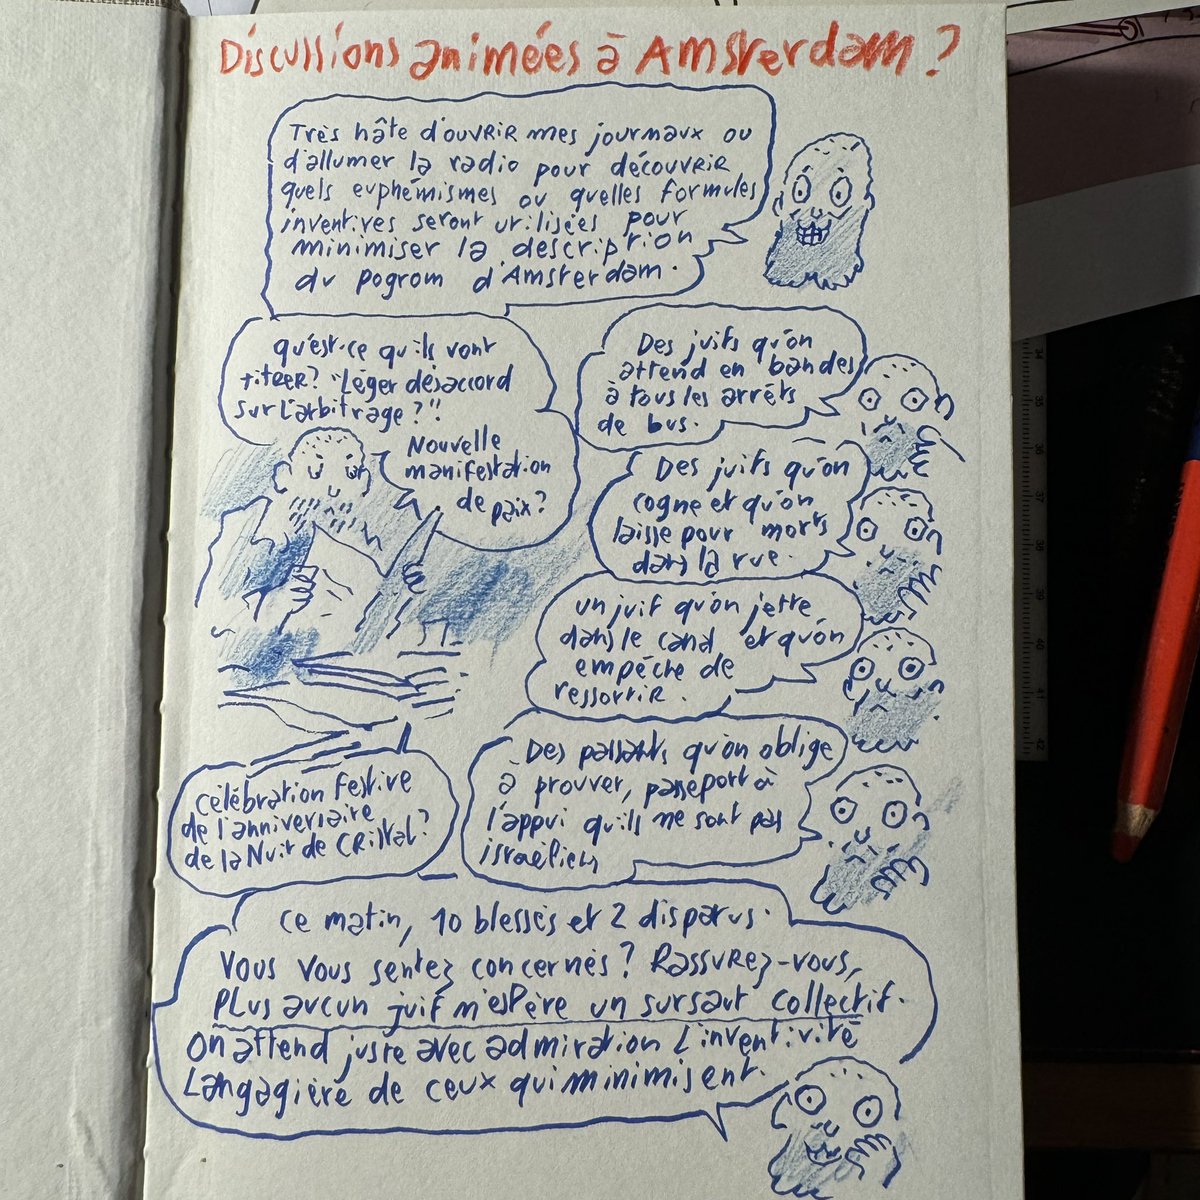 Discussions animées à Amsterdam ?
Très hâte d'ouvrir mes journaux ou
d'allumer la radio pour découvrir
quels euphémismes ou quelles formules
inventives seront utilisées pour
minimiser la description
du pogrom d'Amsterdam.
qu'est-ce qu'ils vont
titrer? "Léger désaccord
sur l'arbitrage?"
Nouvelle
manifestation
de paix?
Des juifs qu'on
attend en bandes
à tous les arrêts
de bus.
Des juifs qu'on
cogne et qu'on
laisse pour morts
dans la rue.
un juif qu'on jette
dans le canal et qu'on
empêche de
ressortir.
Célébration festive
de l'anniversaire
de la Nuit de Cristal?
Des passants qu'on oblige
à prouver, passeport à
l'appui qu'ils ne sont pas
israéliens
Ce matin, 10 blessés et 2 disparus.
Vous vous sentez concernés? Rassurez-vous,
Plus aucun juif n'espère un sursaut collectif.
On attend juste avec admiration l'inventivité
Langagière de ceux qui minimisent.
34
35
36
37
38
39
40
41
42